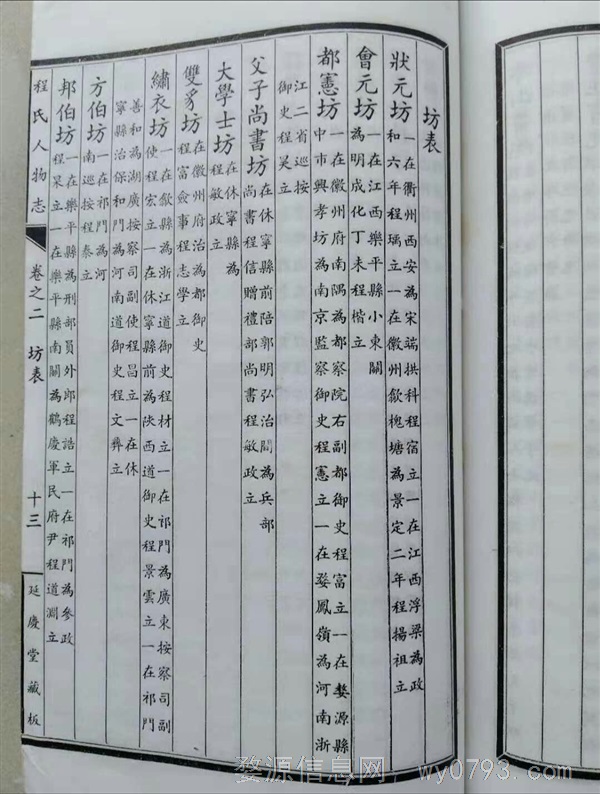 坊表
狀元坊 一在衢州西安為宋端拱科程宿立一在江西浮梁為政
和六年程瑀立一在徽州歙槐塘為景定二年程揚祖立
會元坊 一在江西樂平縣小東關
為明成化丁未程楷立
都憲坊 一在徽州府南隅為都察院右副都御史程富立一在婺源縣
中市興孝坊為南京監察御史程憲立一在婺鳳嶺為河南浙
江二省巡按
御史程昊立
父子尚書坊 在休寧縣前陪郭明弘治間為兵部
尚書程信贈禮部尚書程敏政立
大學士坊 在休寧縣為
程敏政立
雙豸坊 在徽州府治為都御史
程富僉事程志學立
繡衣坊 一在歙縣為浙江道御史程材立一在祁門為廣東按察司副
使程宏立一在休寧縣前為陝西道御史程景雲立一在祁門
善和為湖廣按察司副使程昌立一在休
寧縣治保和門為河南道御史程文彝立
方伯坊 一在祁門為河
南巡按程泰立
邦伯坊 一在樂平縣為刑部員外郎程誥立一在祁門為參政
程杲立一在樂平縣南關為鶴慶軍民府尹程道淵立
程氏人物志 卷之二 坊表 十三 延慶堂藏板
婺源信息网，wy0793.com